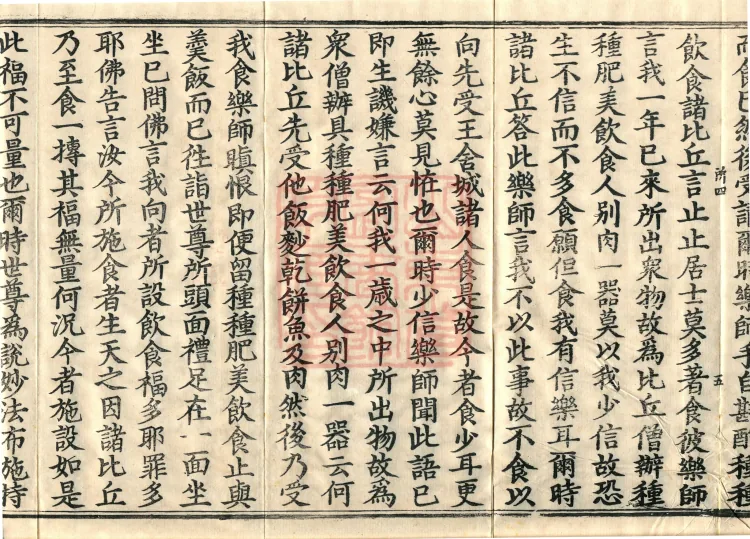 而食已然後受請爾時樂師手自斟酌種種
所四 五
飲食諸比丘言止止居士莫多著食彼樂師
言我一年已來所出衆物故爲比丘僧辦種
種肥美飲食人別肉一器莫以我少信故恐
生不信而不多食願但食我有信樂耳爾時
諸比丘答此樂師言我不以此事故不食以
向先受王舍城諸人食是故今者食少耳更
無餘心莫見恠也爾時少信樂師聞此語已
即生譏嫌言云何我一歲之中所出物故爲
衆僧辦具種種肥美飲食人別肉一器云何
諸比丘先受他飯麨乾餅魚及肉然後乃受
我食樂師瞋恨即便留種種肥美飲食止與
羹飯而已往詣世尊所頭面禮足在一面坐
坐已問佛言我向者所設飲食福多耶罪多
耶佛告言汝今所施食者生天之因諸比丘
乃至食一摶其福無量何況今者施設如是
此福不可量也爾時世尊爲說妙法布施持